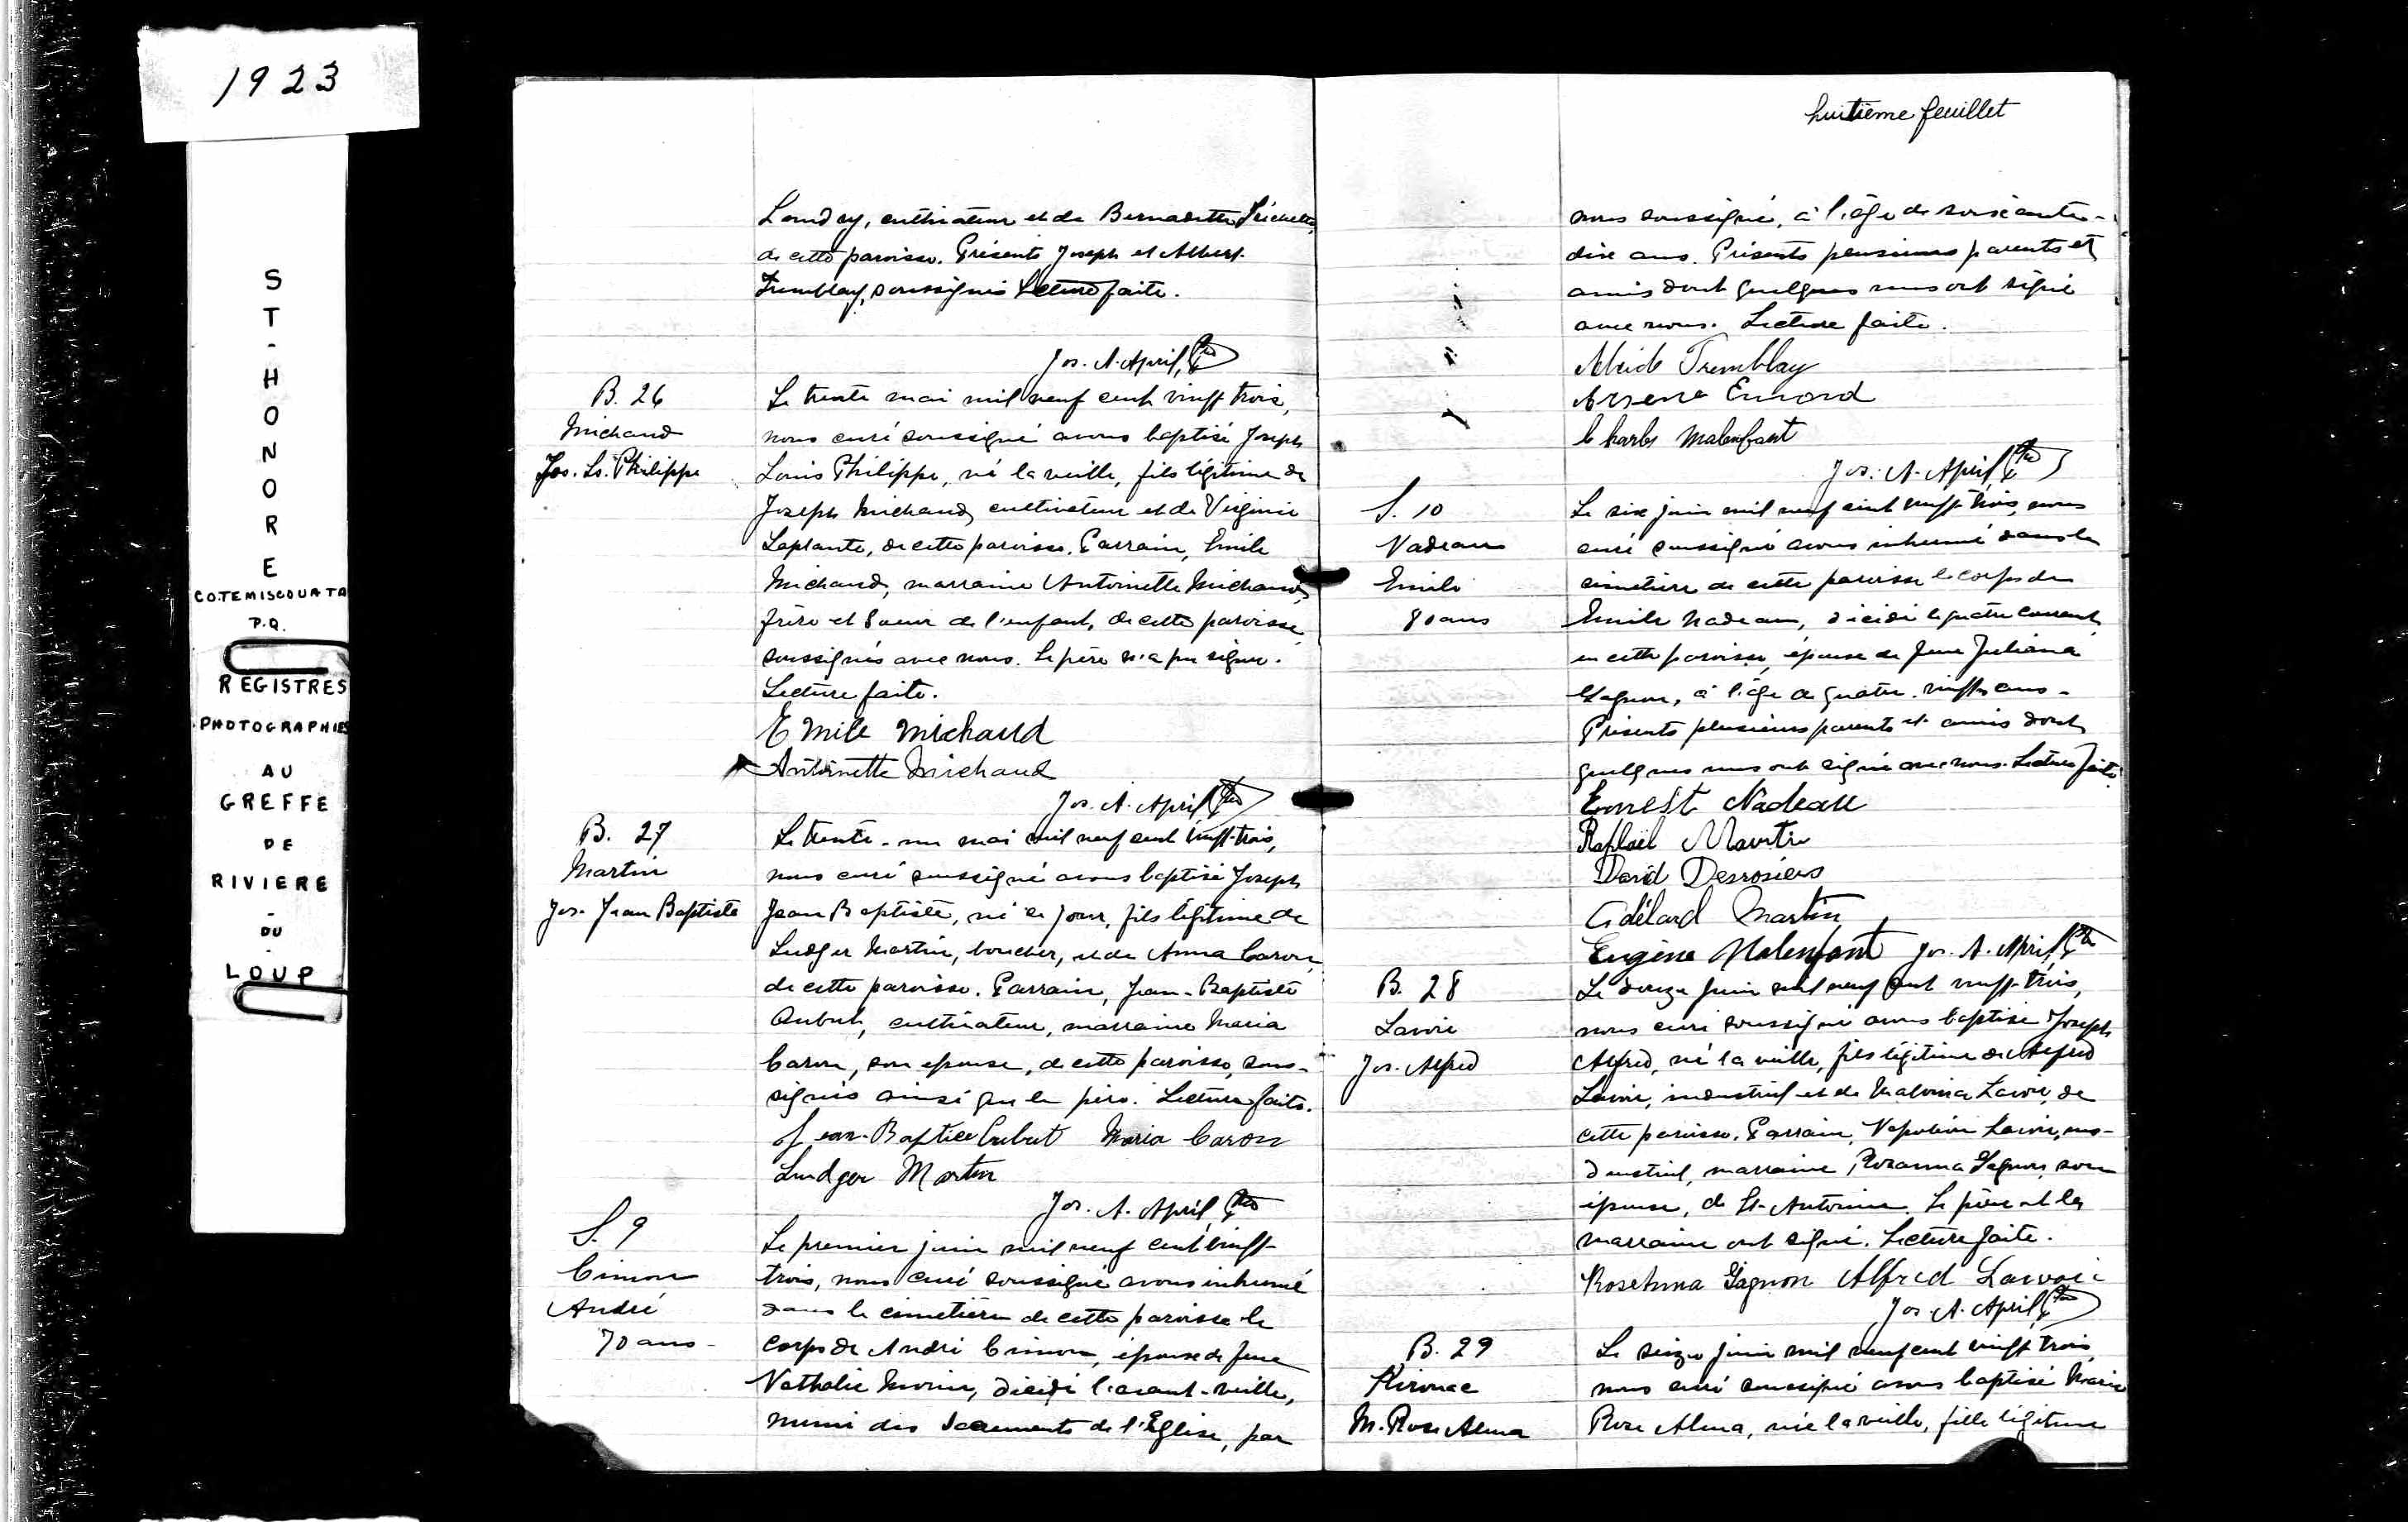 1923
ST-HONORE
CO.TEMISCOUATA
P.Q.
REGISTRES
PHOTOGRAPHIES
AU
GREFFE
DE
RIVIERE
-
DU
-
LOUP
Landry, cultivateur et de Bernadette
de cette paroisse. Présents Joseph et Albert
Tremblay, soussignés Lecture faite.
Jos. A. April, Ptre
B. 26
Michaud
Jos. Ls. Philippe
Le trente mai mil neuf cent vingt trois,
nous curé soussigné avons baptisé Joseph
Louis Philippe, né la veille, fils légitime de
Joseph Michaud, cultivateur et de Virginie
Laplante, de cette paroisse. Parrain, Emile
Michaud, marraine Antoinette Michaud,
frère et soeur de l'enfant, de cette paroisse,
soussignés avec nous. Le père n'a pu signer.
Lecture faite.
Emile Michaud
Antoinette Michaud
Jos. A. April, Ptre
B. 27
Martin
Jos. Jean Baptiste
Le trente-un mai mil neuf cent vingt-trois,
nous curé soussigné avons baptisé Joseph
Jean Baptiste, né ce jour, fils légitime de
Ludger Martin, boucher, et de Anna Caron,
de cette paroisse. Parrain, Jean-Baptiste
Aubut, cultivateur, marraine Maria
Caron, son epouse, de cette paroisse, sous-
signés ainsi que le père. Lecture faite.
Jean-Baptice Cubut Maria Caron
Ludger Martin
Jos. A. April, Ptre
S. 9
Cimon
André
70 ans -
Le premier juin mil neuf cent vingt-
trois, nous curé soussigné avons inhumé
dans le cimetière de cette paroisse le
corps de André Cimon, époux de feue
Nathalie Morin, décédé l'avant-veille,
muni des sacrements de l'Eglise, par
huitième feuillet
nous soussigné, à l'âge de soixante-
dix ans. Présents plusieurs parents et
amis dont quelques uns ont signé
avec nous. Lecture faite.
Tremblay
Arsene Emond
Charles Malenfant
Jos. A. April, Ptre
S. 10
Nadeau
Emile
80 ans
Le six juin mil neuf cent vingt-trois, nous
curé soussigné avons inhumé dans le
cimetière de cette paroisse le corps de
Emile Nadeau, décédé le quatre courant,
en cette paroisse, époux de feue Juliana
Gagnon, à l'âge de quatre-vingts ans.
Présents plusieurs parents et amis dont
quelques uns ont signé avec nous. Lecture faite.
Ernest Nadeau
Raphaël
David Desrosiers
Adélard Martin
Eugène Malenfant Jos. A. April, Ptre
B. 28
Lavoie
Jos. Alfred
Le douze juin mil neuf cent vingt-trois,
nous curé soussigné avons baptisé Joseph
Alfred, né la veille, fils légitime de Alfred
Lavoie, industriel et de Malvina Lavoie, de
cette paroisse. Parrain, Napoléon Lavoie, in-
dustriel, marraine, Rosanna Gagnon, son
épouse, de St-Antonin. Le père et la
marraine ont signé. Lecture faite.
RoseAnna Gagnon Alfred Lavoie
Jos. A. April, Ptre
B. 29
Kirouac
M. Rose Alma
Le seize juin mil neuf cent vingt trois
nous curé soussigné avons baptisé Marie
Rose Alma, née la veille, fille légitime